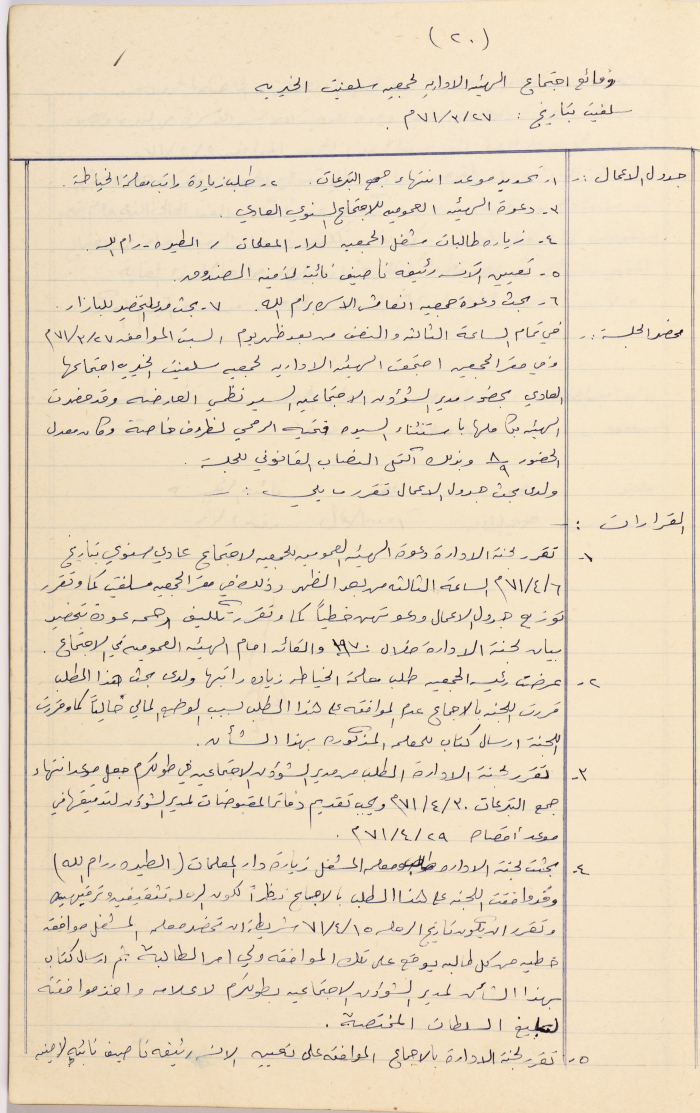 (٢٠)
وقائع اجتماع الهيئة الادارية لجمعية سلفيت الخيرية
سلفيت بتاريخ : ٧١/٣/٢٧م.
جدول الاعمال :- ١- تحديد موعد انتهاء جمع التبرعات. ٢- طلب زيادة راتب معلمة الخياطة.
٣- دعوة الهيئة العمومية للاجتماع السنوي العادي.
٤- زيارة طالبات مشغل الجمعية لدار المعلمات / الطيره - رام الله.
٥- تعيين الآنسه رئيفه ناصيف نائبة لأمينه الصندوق.
٦- بحث دعوة جمعية انعاش الاسره برام الله. ٧- بحث التحضير للبازار.
محضر الجلسة :- في تمام الساعة الثالثة والنصف من بعد ظهر يوم السبت الموافق ٧١/٣/٢٧م
وفي مقر الجمعيه اجتمعت الهيئه الادارية لجمعيه سلفيت الخيريه اجتماعها
العادي بحضور مدير الشؤون الاجتماعيه السيد نظمي العارضه وقد حضرت
الهيئه بكاملها باستثناء السيده فتحيه لظروف خاصة وكان معدل
الحضور ٨/٩ وبذلك اكتمل النصاب القانوني للجلسة.
ولدى بحث جدول الاعمال تقرر ما يلي :-
القرارات :-
١- تقرر لجنة الادارة دعوة الهيئه العموميه للجمعيه لاجتماع عادي سنوي بتاريخ
٧١/٤/٦م الساعة الثالثه من بعد الظهر وذلك في مقر الجمعيه سلفيت كما وتقرر
توزيع جدول الاعمال ودعوتهن خطياً كما وتقرر تكليف عودة بتحضير
بيان لجنة الادارة خلال ١٩٧٠ والقائه امام الهيئه العموميه في الاجتماع.
٢- عرضت رئيسة الجمعيه طلب معلمة الخياطه زيادة راتبها ولدى بحث هذا الطلب
قررت اللجنه بالاجماع عدم الموافقه على هذا الطلب بسبب الوضع المالي حالياً كما وقررت
اللجنة ارسال كتاب للمعلمه المذكوره بهذا الشأن.
٣- تقرر لجنة الادارة الطلب من مدير الشؤون الاجتماعيه في طولكرم جعل موعد انتهاء
جمع التبرعات ٧١/٤/٣٠م ويجب تقديم دفاتر المقبوضات لمدير الشؤون لتدقيقها في
موعد أقصاه ٧١/٤/٢٩م.
٤- بحثت لجنة الاداره طلب معلمه المشغل زيارة دار المعلمات (الطيره رام الله)
وقد وافقت اللجنه على هذا الطلب بالاجماع نظراً لكون الرحله تثقيفيه وترفيهيه
وتقرر ان يكون تاريخ الرحله ٧١/٤/١٥ شريطة ان تحضر معلمه المشغل موافقه
خطيه من كل طالبه يوقع على تلك الموافقه ولي امر الطالبة ثم ارسال كتاب
بهذا الشأن لمدير الشؤون الاجتماعيه بطولكرم لاعلامه واخذ موافقته
السلطات المختصة.
٥- تقرر لجنة الادارة بالاجماع الموافقه على تعيين الآنسه رئيفه ناصيف نائبه لأمينه